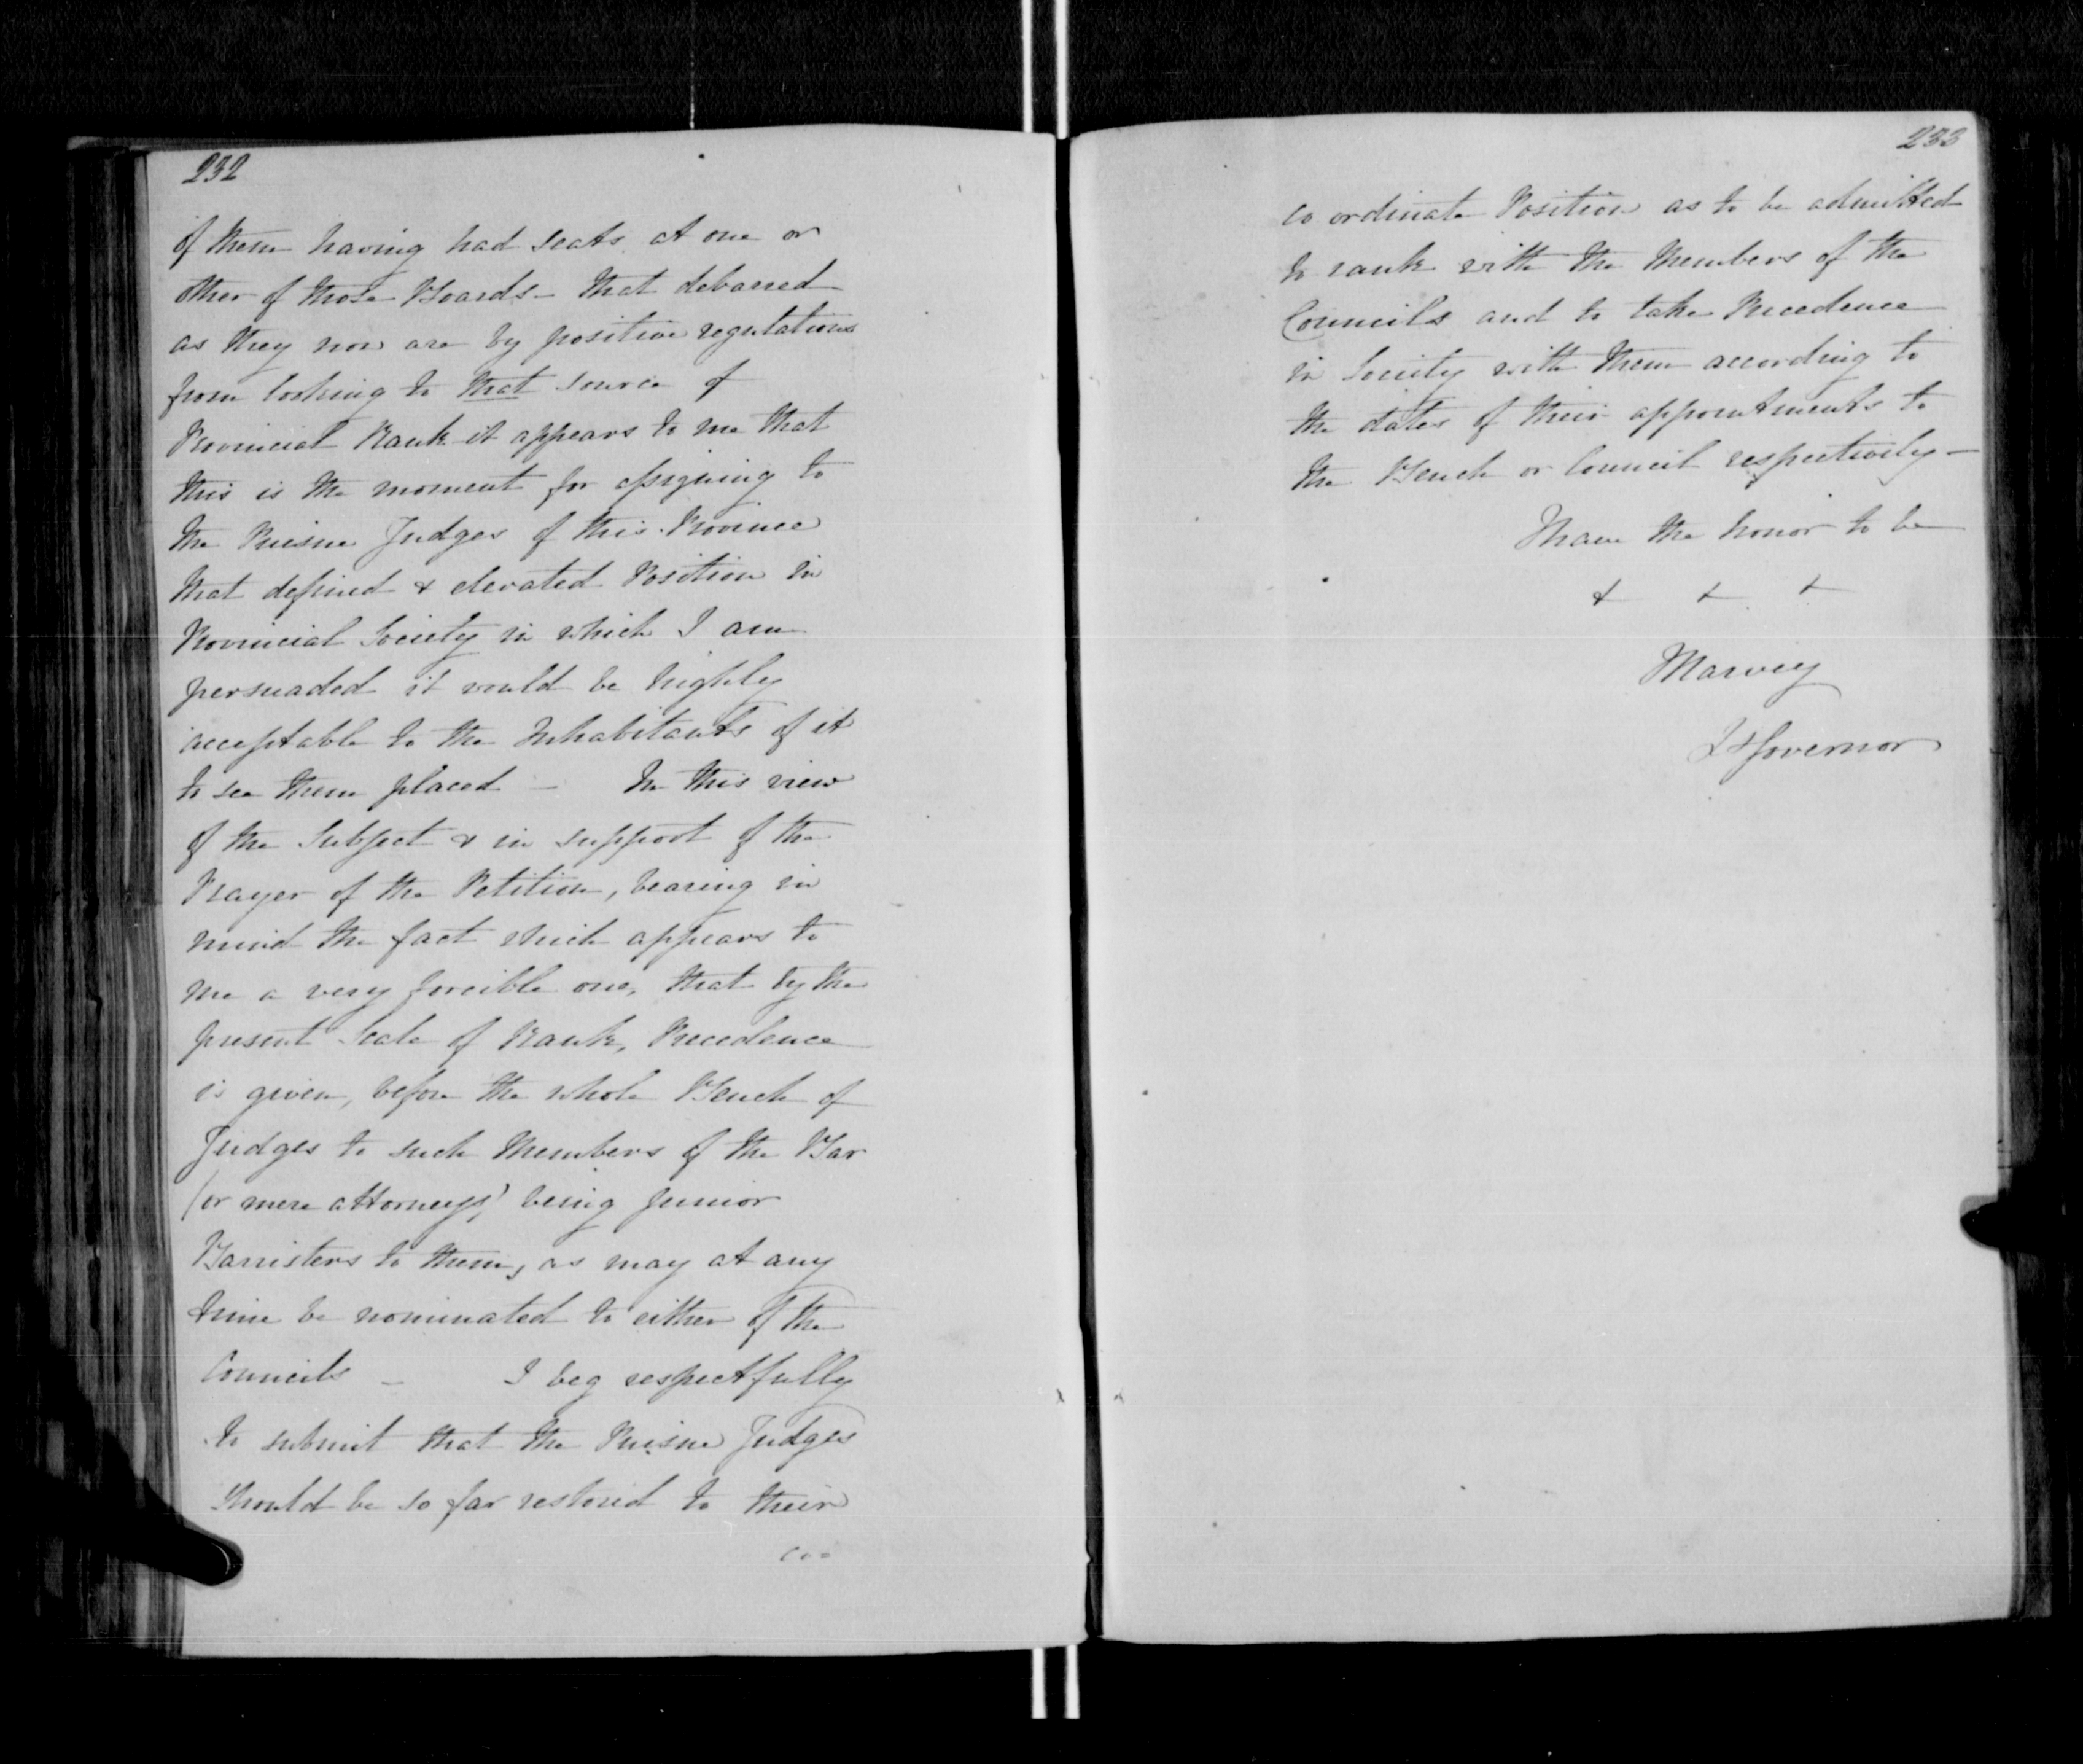 232
of them having had seats at one or
other of those Boards - that debarred
as they now are by positive regulations
from looking to that source of
Provincial Rank it appears to me that
this is the moment for assigning to
the Puisne Judges of this Province
that defined & elevated Position in
Provincial Society in which I am
persuaded it would be highly
acceptable to the Inhabitants of it
to see them placed - In this view
of the Subject & in support of the
Prayer of the Petition, bearing in
mind the fact which appears to
me a very forcible one, that by the
present Scale of Rank, Precedence
is given, before the whole Bench of
Judges to such Members of the Bar
(or mere attorneys) being junior
Barristers to them, as may at any
time be nominated to either of the
Councils - I beg respectfully
to submit that the Puisne Judges
should be so far restored to their
coo
233
co ordinate Position as to be admitted
to rank with the Members of the
Councils and to take Precedence
in Society with them according to
the dates of their appointments to
the Bench or Council respectively -
I have the honor to be
& & &
JHarvey
Lt Governor